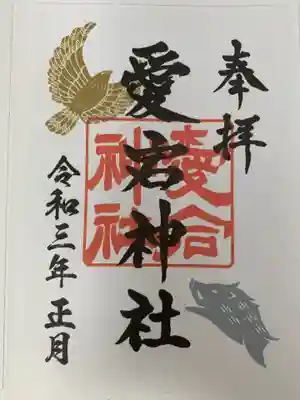 奉拝
愛宕神社
令和三年正月
神社